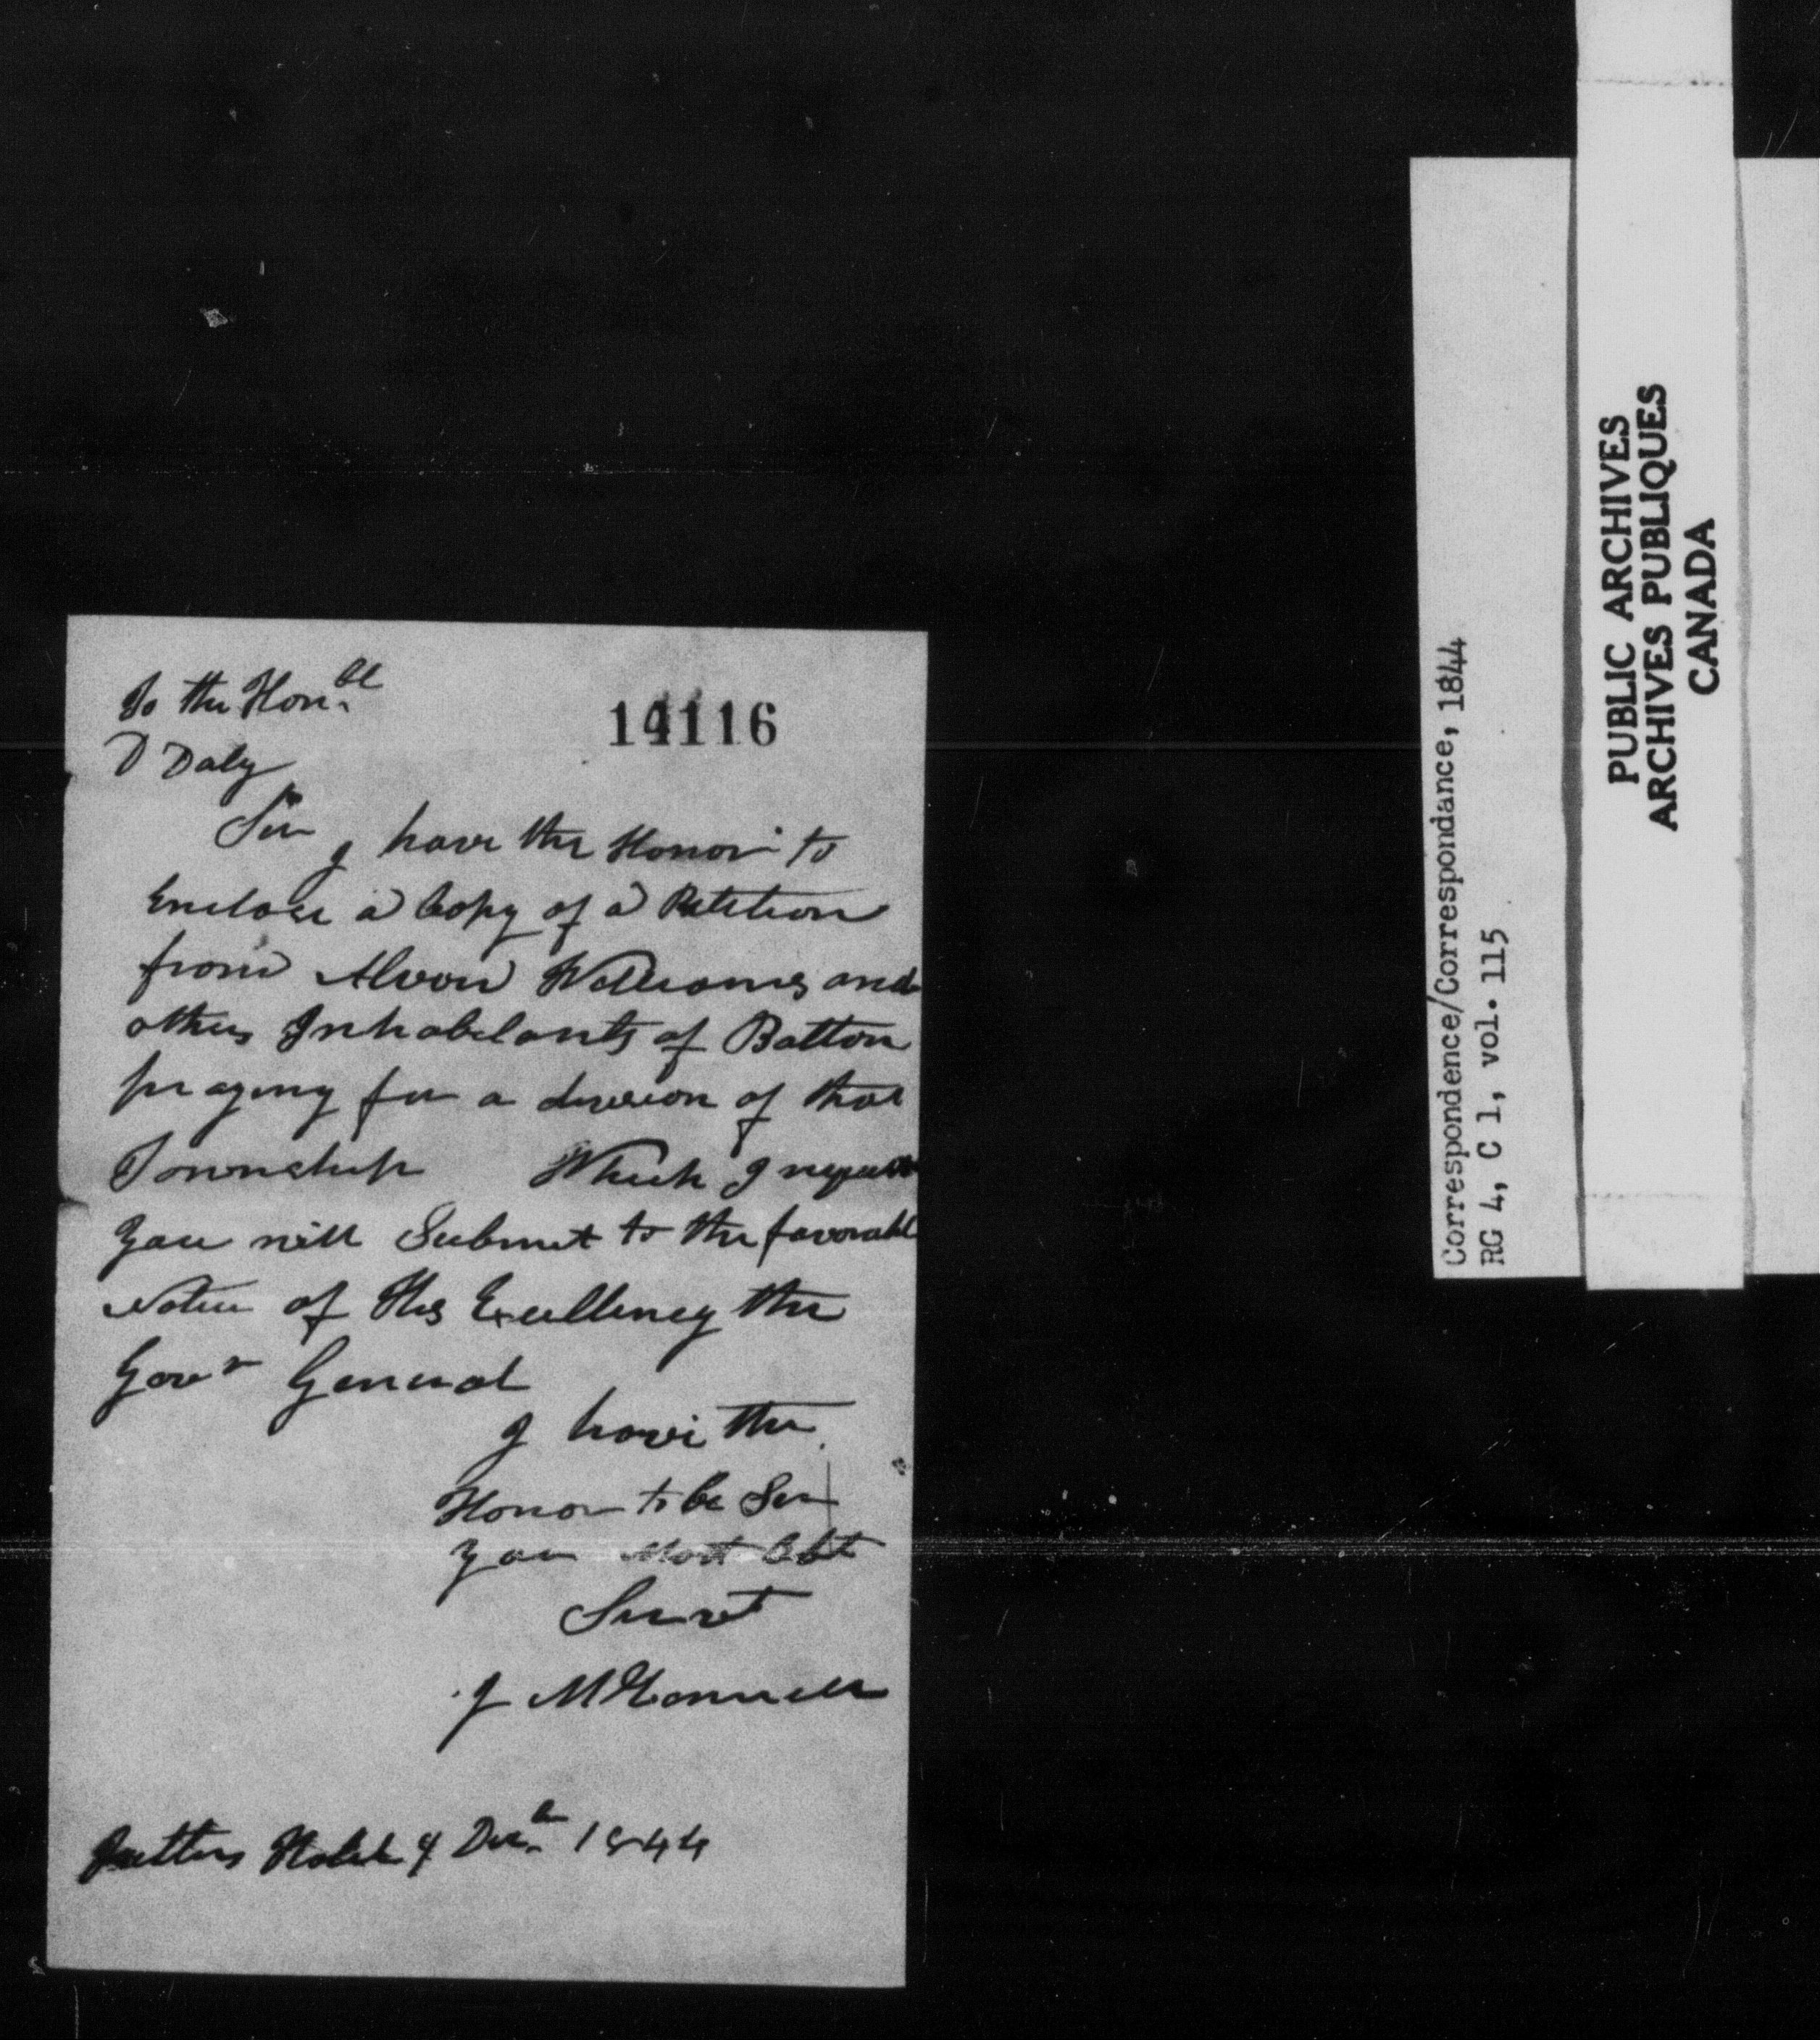 To the Hon.ble
14116
D Daly
Sir I have the Honor to
Enclose a Copy of a Petition
from Alvon Williams and
others Inhabitants of Bolton
praying for a division of that
Township Which I request
you will Submit to the favorable
Notice of His Excellency the
Govr General
I have the
Honor to be Sir
Your Most Obt
Servt
J McConnell
Hotel 4 Decr 1844
Correspondence/Correspondance, 1844
RG 4, C 1, vol. 115
PUBLIC ARCHIVES
ARCHIVES PUBLIQUES
CANADA